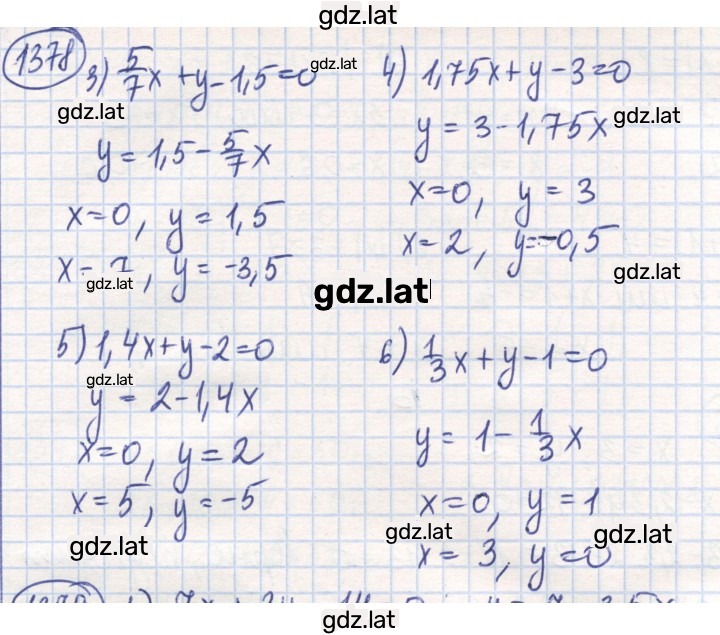 gdz.lat
1378
3) 5/7x + y - 1,5 = 0
gdz.lat
gdz.lat
y = 1,5 - 5/7 x
x = 0, y = 1,5
x = 7, y = -3,5
gdz.lat
4) 1,75x + y - 3 = 0
y = 3 - 1,75x
gdz.lat
x = 0, y = 3
x = 2, y = -0,5
gdz.lat
gdz.lat
5) 1,4x + y - 2 = 0
gdz.lat
y = 2 - 1,4x
x = 0, y = 2
x = 5, y = -5
gdz.lat
6) 1/3 x + y - 1 = 0
y = 1 - 1/3 x
x = 0, y = 1
gdz.lat
gdz.lat
x = 3, y = 0
gdz.lat